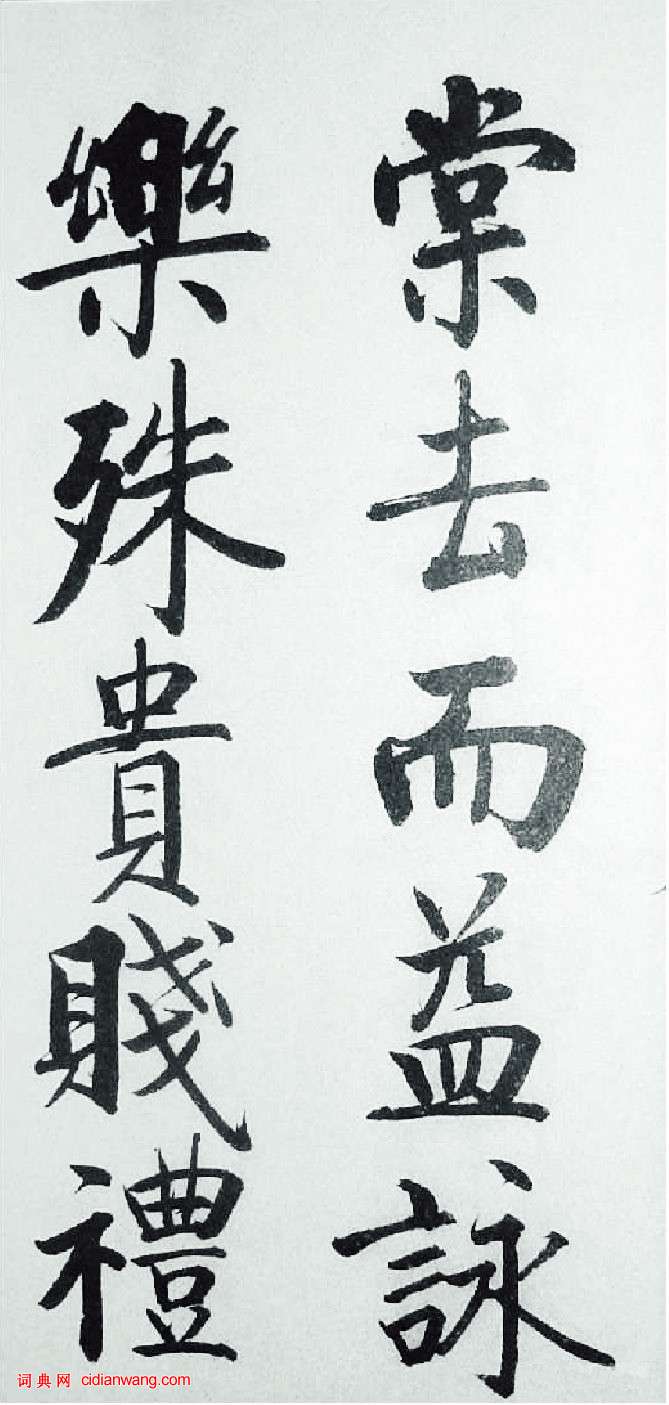 棠去而益詠
樂殊貴賤禮
词典网 cidianwang.com